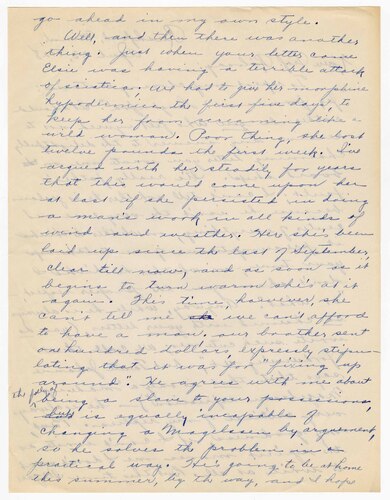 go ahead in my own style.
Well, and then there was another
thing. Just when your letter came
Elsie was having a terrible attack
of sciatica. We had to give her morphine
hypodermics the first five days, to
keep her from screaming like a
wild woman. Poor thing, she lost
twelve pounds the first week. I've
argued with her steadily for years
that this would come upon her
at last if she persisted in doing
a man's work in all kinds of
wind and weather. Here she's been
laid up since the last of September,
clear till now, and as soon as it
begins to turn warm she's at it
again. This time, however, she
can't tell me she we can't afford
to have a man; our brother sent
one hundred dollars, expressly stipu-
lating that it was for "fixing up
around". He agrees with me about
the folly of
being a slave to your possessions,
but is equally incapable of
changing a Mingelsen by argument,
so he solves the problem in a
practical way. He's going to be at home
this summer, by the way, and I hope